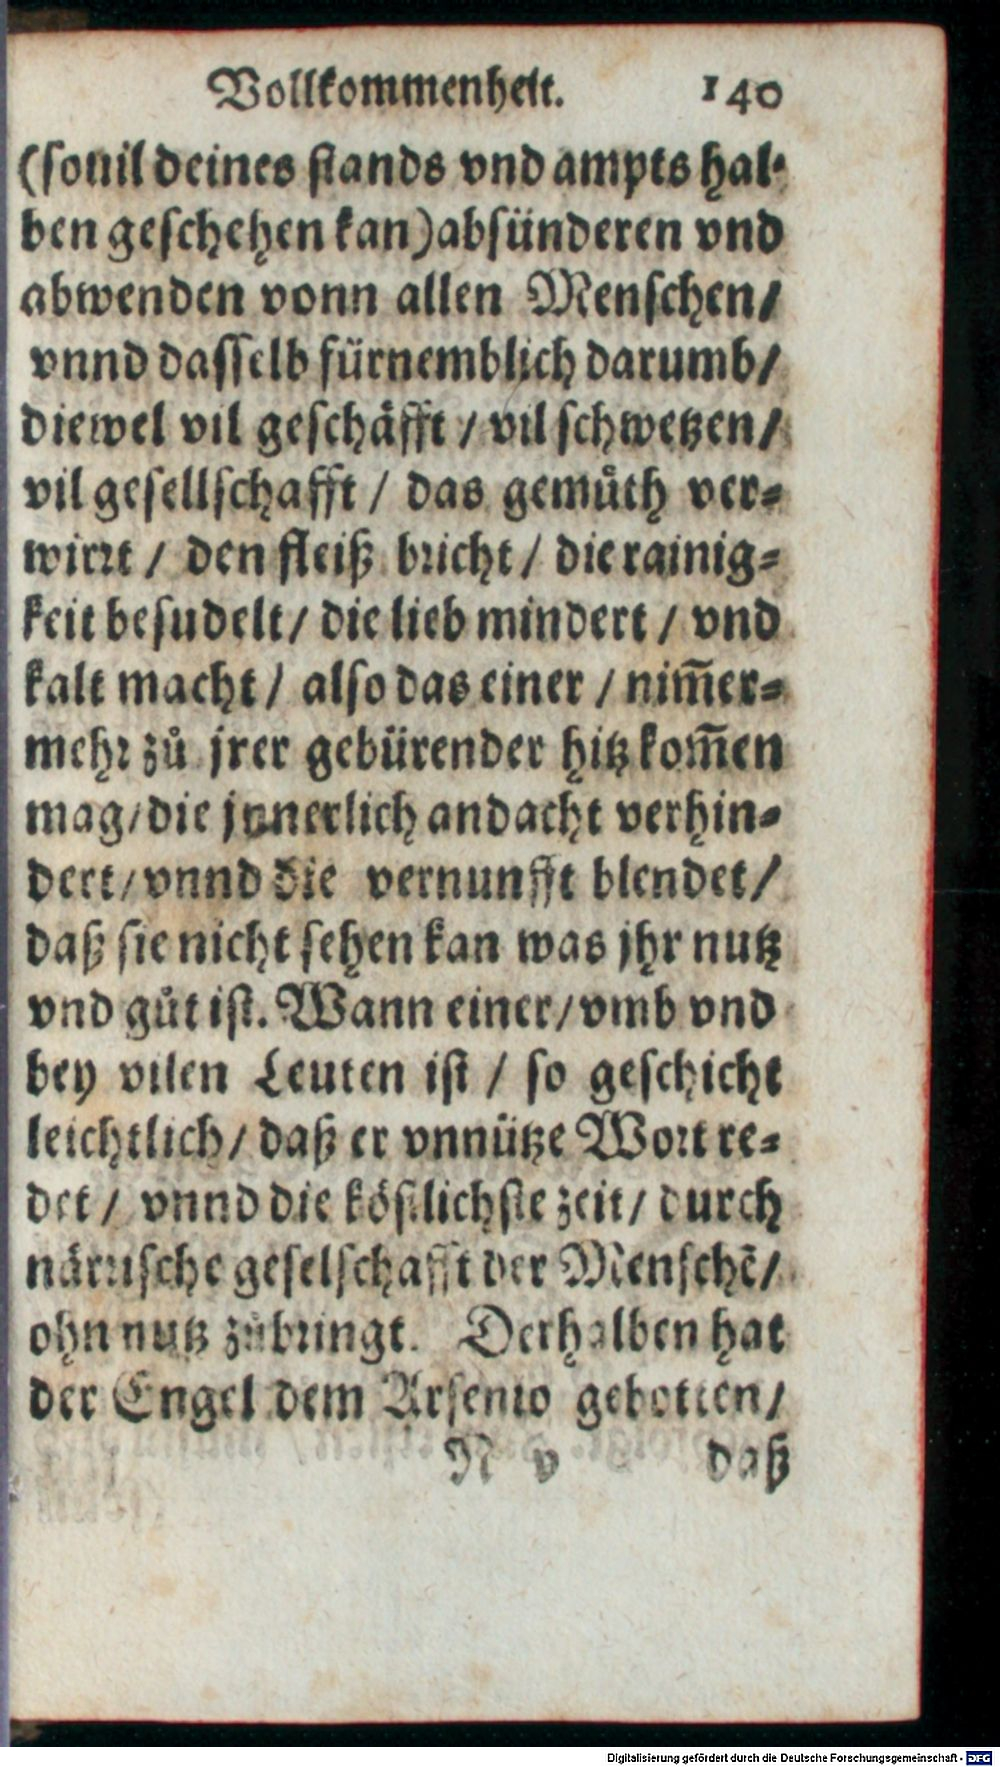 Vollkommenheit. 140
(souil deines stands vnd ampts hal-
ben geschehen kan) absünderen vnd
abwenden vonn allen Menschen/
vnnd dasselb fürnemblich darumb/
diewel vil geschäfft / vil schwetzen/
vil gesellschafft / das gemuͤth ver-
wirrt / den fleiß bricht / die rainig-
keit besudelt / die lieb mindert / vnd
kalt macht / also das einer / nim̄er-
mehr zuͦ jrer gebürender hitz kom̄en
mag / die jnnerlich andacht verhin-
dert / vnnd die vernunfft blendet/
daß sie nicht sehen kan was jhr nutz
vnd guͦt ist. Wann einer / vmb vnd
bey vilen Leuten ist / so geschicht
leichtlich / daß er vnnütze Wort re-
det / vnnd die köstlichste zeit / durch
närrische geselschafft der Menschē/
ohn nutz zuͦbringt. Derhalben hat
der Engel dem Arsenio gebotten/
N v daß
Digitalisierung gefördert durch die Deutsche Forschungsgemeinschaft - DFG